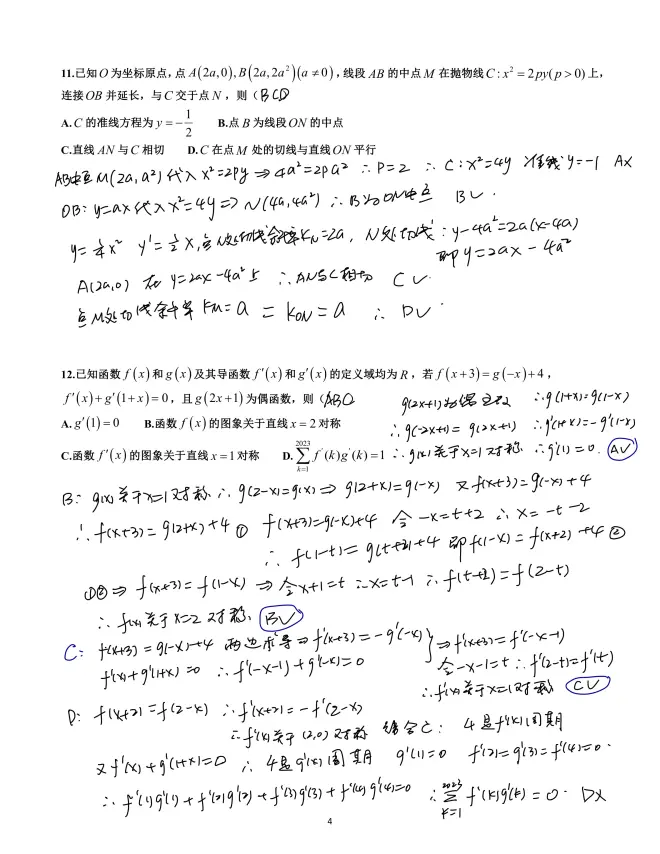 11.已知O为坐标原点,点A(2a,0),B(2a,2a²)(a≠0),线段AB的中点M在抛物线C:x²=2py(p>0)上,
连接OB并延长,与C交于点N,则( BCD
A.C的准线方程为y=-1/2 B.点B为线段ON的中点
C.直线AN与C相切 D.C在点M处的切线与直线ON平行
AB中点M(2a,a²)代入x²=2py⇒4a²=2pa² ∴P=2 ∴C:x²=4y 准线y=-1 A×
OB:y=ax代入x²=4y⇒N(4a,4a²) ∴B为ON中点 B√.
y=¼x² y'=½x,点N处切线斜率k_N=2a, N处切线:y-4a²=2a(x-4a)
即y=2ax-4a²
A(2a,0)在y=2ax-4a²上 ∴AN与C相切 C√.
点M处切线斜率k_M=a = k_ON=a ∴D√.
12.已知函数f(x)和g(x)及其导函数f′(x)和g′(x)的定义域均为R,若f(x+3)=g(-x)+4,
f′(x)+g′(1+x)=0,且g(2x+1)为偶函数,则( ABC
g(2x+1)为偶函数 ∴g(1+x)=g(1-x)
A.g′(1)=0 B.函数f(x)的图象关于直线x=2对称
∴g(-2x+1)=g(2x+1) ∴g'(1+x)=-g'(1-x)
C.函数f′(x)的图象关于直线x=1对称 D.∑_{k=1}^{2023} f′(k)g′(k)=1
∴g(x)关于x=1对称 ∴g'(1)=0. A√
B:g(x)关于x=1对称 ∴g(2-x)=g(x)⇒g(2+x)=g(-x) 又f(x+3)=g(-x)+4
∴f(x+3)=g(2+x)+4 ① f(x+3)=g(-x)+4 令-x=t+2 ∴x=-t-2
∴f(1-t)=g(t+2)+4 即f(1-x)=f(x+2)+4 ②
①②⇒f(x+3)=f(1-x)⇒令x+1=t ∴x=t-1 ∴f(t+2)=f(2-t)
∴f(x)关于x=2对称. B√
C:f(x+3)=g(-x)+4 两边求导⇒f'(x+3)=-g'(-x)}⇒f'(x+3)=f'(-x-1)
f'(x)+g'(1+x)=0 ∴f'(-x-1)+g'(-x)=0 令-x-1=t ∴f'(2-t)=f'(t)
∴f'(x)关于x=1对称 C√
D:f(x+2)=f(2-x) ∴f'(x+2)=-f'(2-x)
∴f'(x)关于(2,0)对称 结合C:4是f'(x)周期
又f'(x)+g'(1+x)=0 ∴4是g'(x)周期 g'(1)=0 f'(2)=g'(3)=f'(4)=0.
∴f'(1)g'(1)+f'(2)g'(2)+f'(3)g'(3)+f'(4)g'(4)=0 ∴∑_{k=1}^{2023} f'(k)g'(k)=0. D×
4